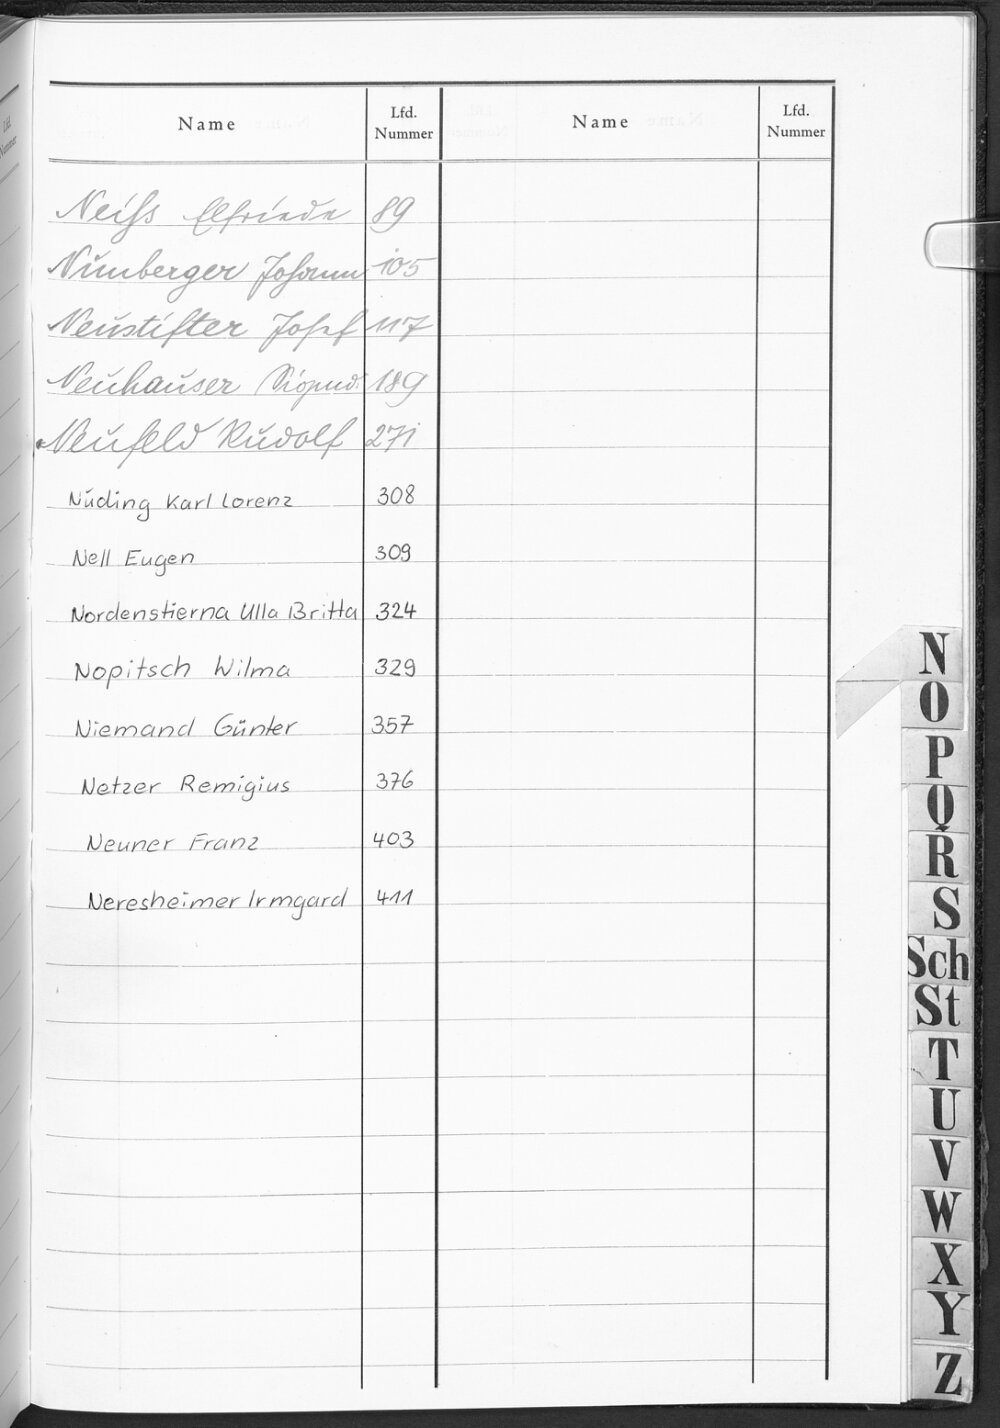 Name Lfd. Nummer Name Lfd. Nummer
Neiß Elfriede 89
Nürnberger Johann 105
Neustifter Josef 117
Neuhauser 189
Neufeld Rudolf 271
Nüding Karl Lorenz 308
Nell Eugen 309
Nordenstierna Ulla Britta 324
Nopitsch Wilma 329
Niemand Günter 357
Netzer Remigius 376
Neuner Franz 403
Neresheimer Irmgard 411
N
O
P
Q
R
S
Sch
St
T
U
V
W
X
Y
Z